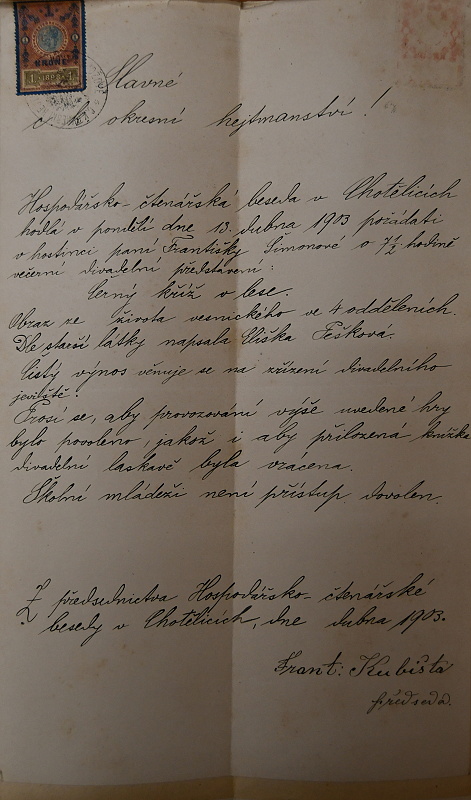 1
KRONE
Slavné
c. k. okresní hejtmanství!
Hospodářsko-čtenářská beseda v Chotělicích
hodlá v pondělí dne 13. dubna 1903 pořádati
v hostinci paní Františky Šimonové o 7½ hodině
večerní divadelní představení:
Černý kříž v lese.
Obraz ze života vesnického ve 4 odděleních.
Dle starší látky napsala Eliška Pešková.
Čistý výnos věnuje se na zřízení divadelního
jeviště.
Prosí se, aby provozování výše uvedené hry
bylo povoleno, jakož i aby přiložená knížka
divadelní laskavě byla vrácena.
Školní mládeži není přístup dovolen.
Z předsednictva Hospodářsko-čtenářské
besedy v Chotělicích, dne dubna 1903.
Frant: Kubišta
předseda.